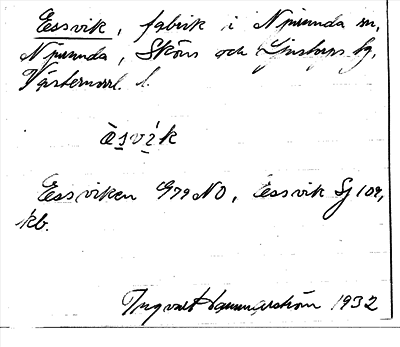 Essvik, fabrik i Njurunda sn,
Njurunda, Sköns och Ljustorps tg,
Västernorrl. l.
èsvik
Essviken G79 NO, Essvik Sj 109,
kb.
Ingvar Hammarström 1932